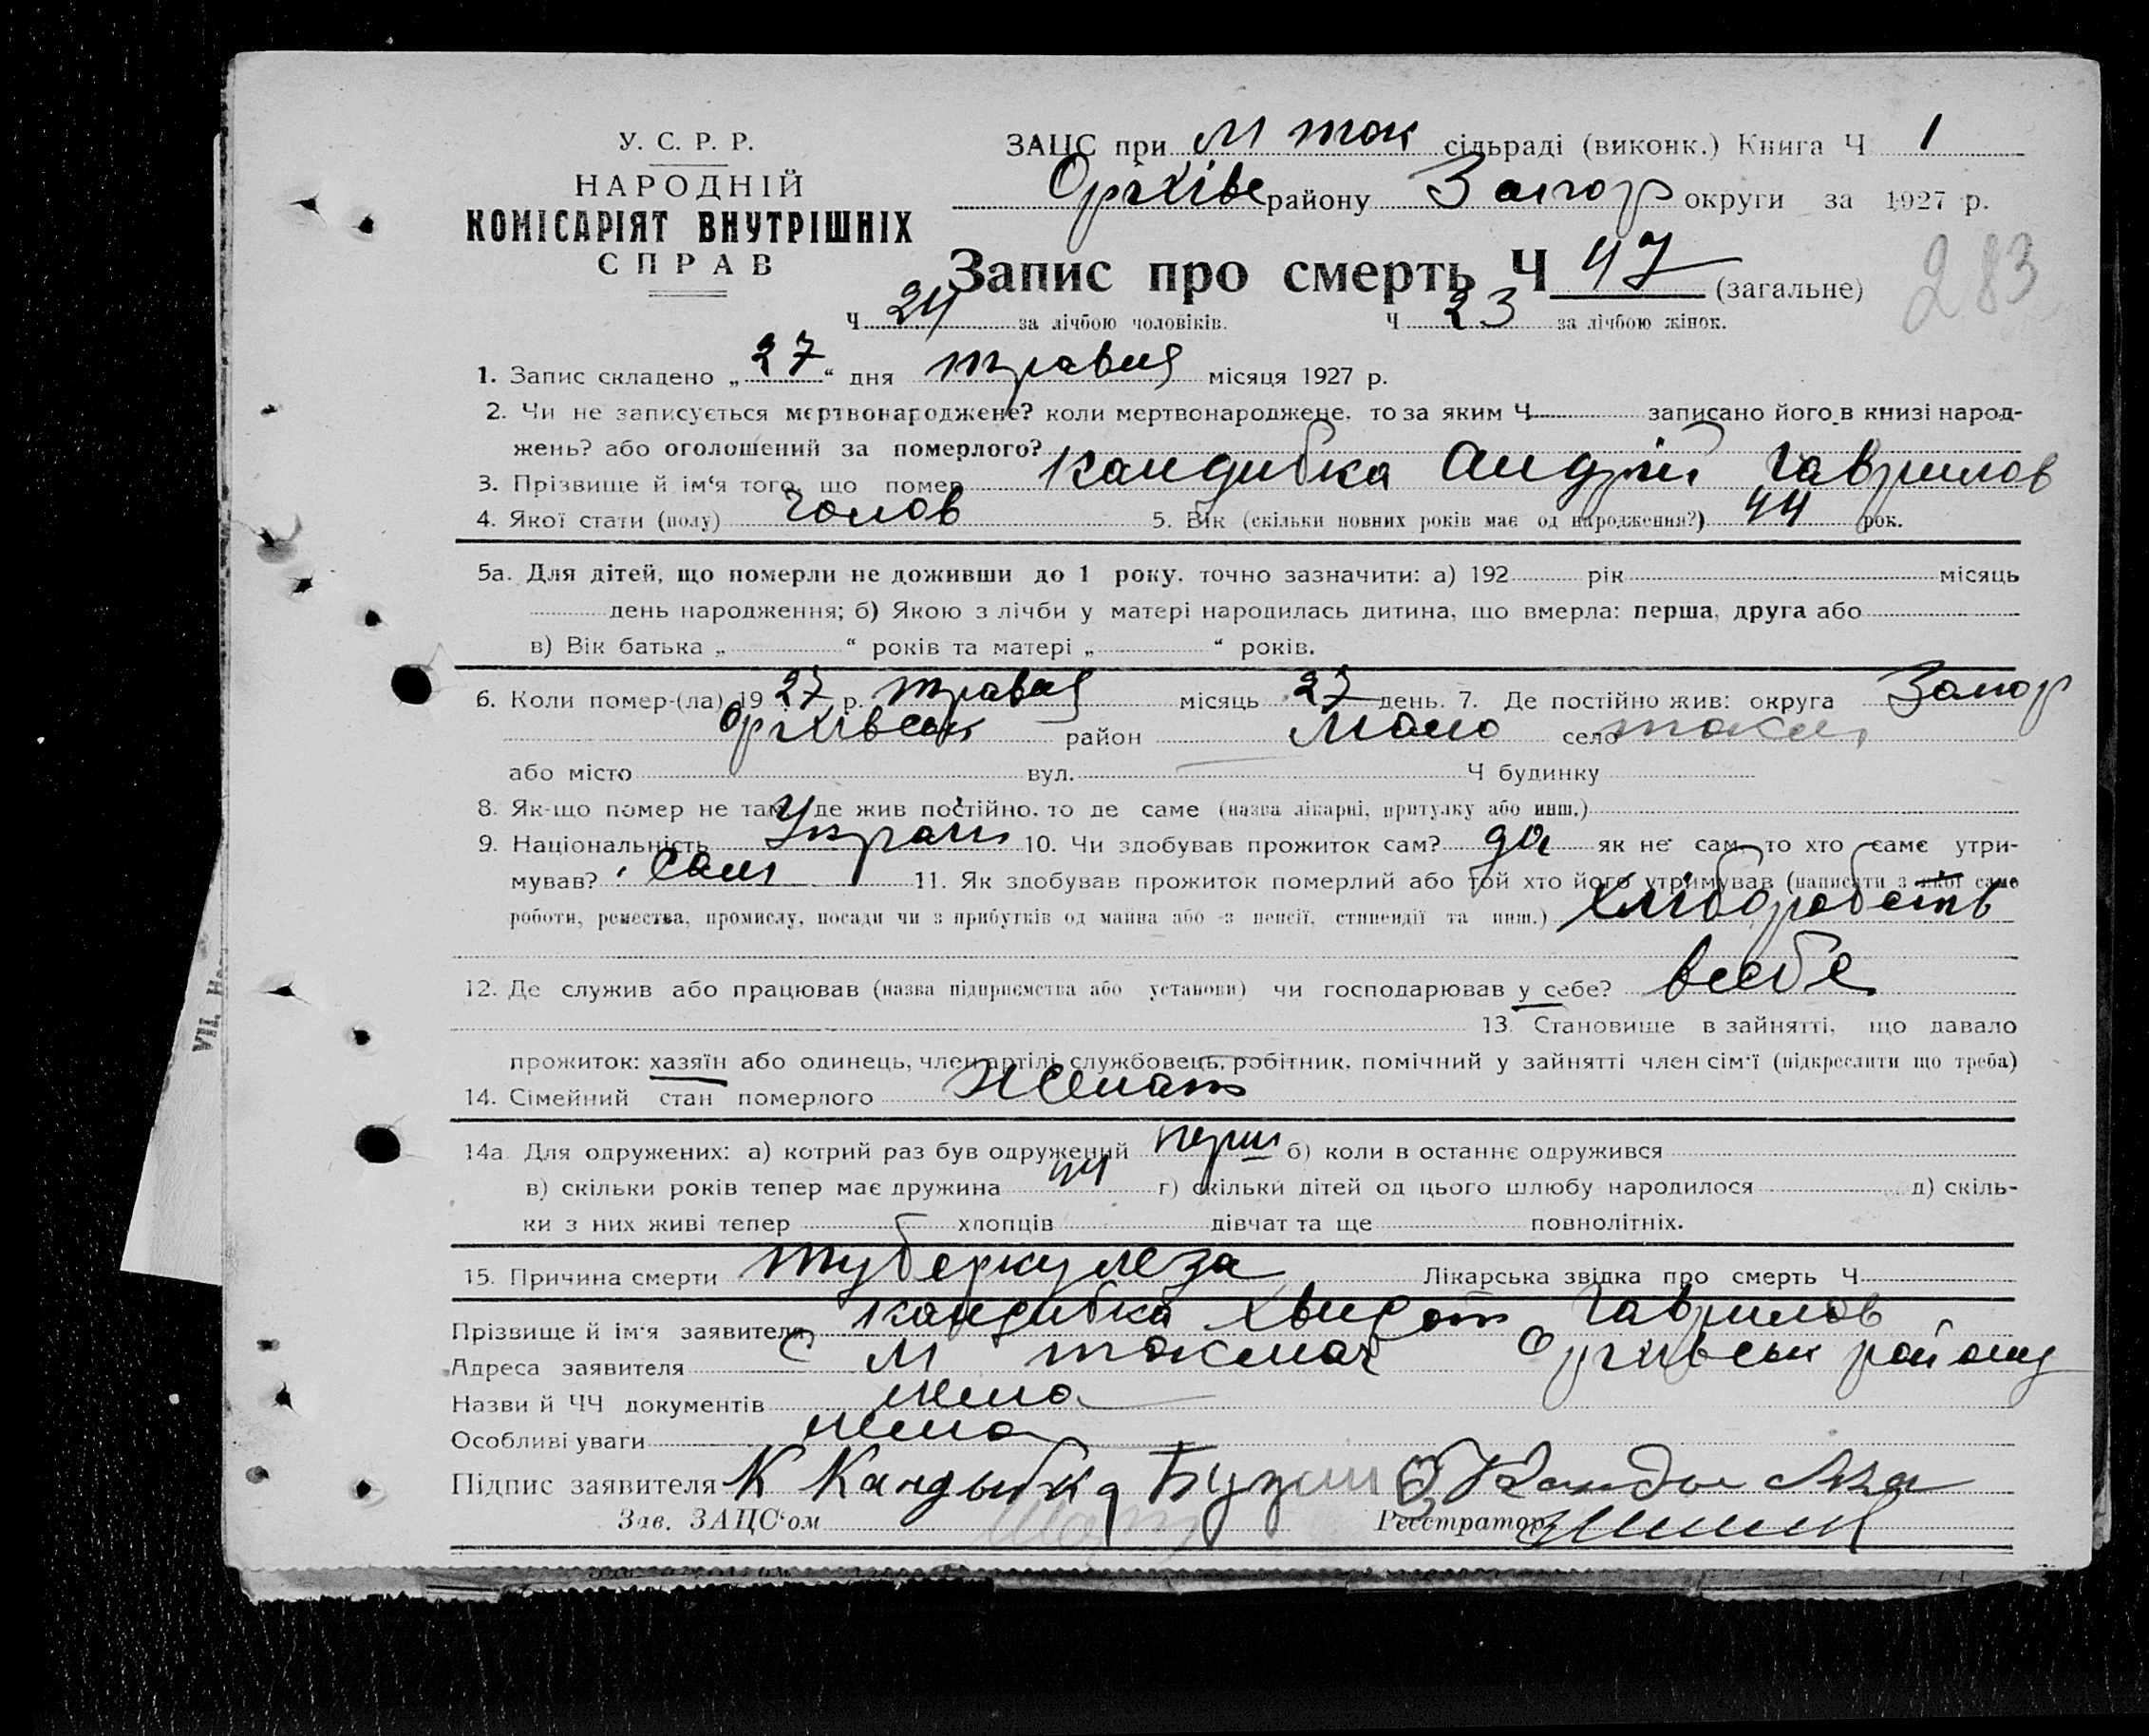 У. С. Р. Р.
НАРОДНІЙ
КОМІСАРІЯТ ВНУТРІШНІХ
СПРАВ
ЗАЦС при М ток сільраді (виконк.) Книга Ч 1
Оріхівс району Запор округи за 1927 р.
Запис про смерть Ч 47 (загальне)
283
Ч 24 за лічбою чоловіків. Ч 23 за лічбою жінок.
1. Запис складено „27“ дня травня місяця 1927 р.
2. Чи не записується мертвонароджене? коли мертвонароджене, то за яким Ч записано його в книзі народ-
жень? або оголошений за померлого?
3. Прізвище й ім‘я того, що помер Кандибка Андрій Гаврилов
4. Якої стати (полу) Чолов 5. Вік (скільки повних років має од народження?) 44 рок.
5а. Для дітей, що померли не доживши до 1 року, точно зазначити: а) 192 рік місяць
день народження; б) Якою з лічби у матері народилась дитина, що вмерла: перша, друга або
в) Вік батька „ “ років та матері „ “ років.
6. Коли помер-(ла) 19 27 р. травня місяць 27 день. 7. Де постійно жив: округа Запор
Оріхівськ район Мало село токм
або місто вул. Ч будинку
8. Як-що помер не там, де жив постійно, то де саме (назва лікарні, притулку або инш.)
9. Національність Украін 10. Чи здобував прожиток сам? да як не сам, то хто саме утри-
мував? Сам 11. Як здобував прожиток померлий або той хто його утримував (написати з якої саме
роботи, ремества, промислу, посади чи з прибутків од майна або з пенсії, стипендії та инш.) Хліборобств
12. Де служив або працював (назва підприємства або установи) чи господарював у себе? в себе
13. Становище в зайнятті, що давало
прожиток: хазяїн або одинець, член артілі, службовець, робітник, помічний у зайнятті член сім‘ї (підкреслити що треба)
14. Сімейний стан померлого Женат
14а Для одружених: а) котрий раз був одружений перш б) коли в останнє одружився
в) скільки років тепер має дружина 44 г) скільки дітей од цього шлюбу народилося д) скіль-
ки з них живі тепер хлопців дівчат та ще повнолітніх.
15. Причина смерти туберкулеза Лікарська звідка про смерть Ч
Прізвище й ім‘я заявителя Кандибка Хведот Гаврилов
Адреса заявителя С М токмач Оріхівськ району
Назви й ЧЧ документів нема
Особливі уваги нема
Підпис заявителя К Кандыбка
Зав. ЗАЦС‘ом Реєстратор
VII.